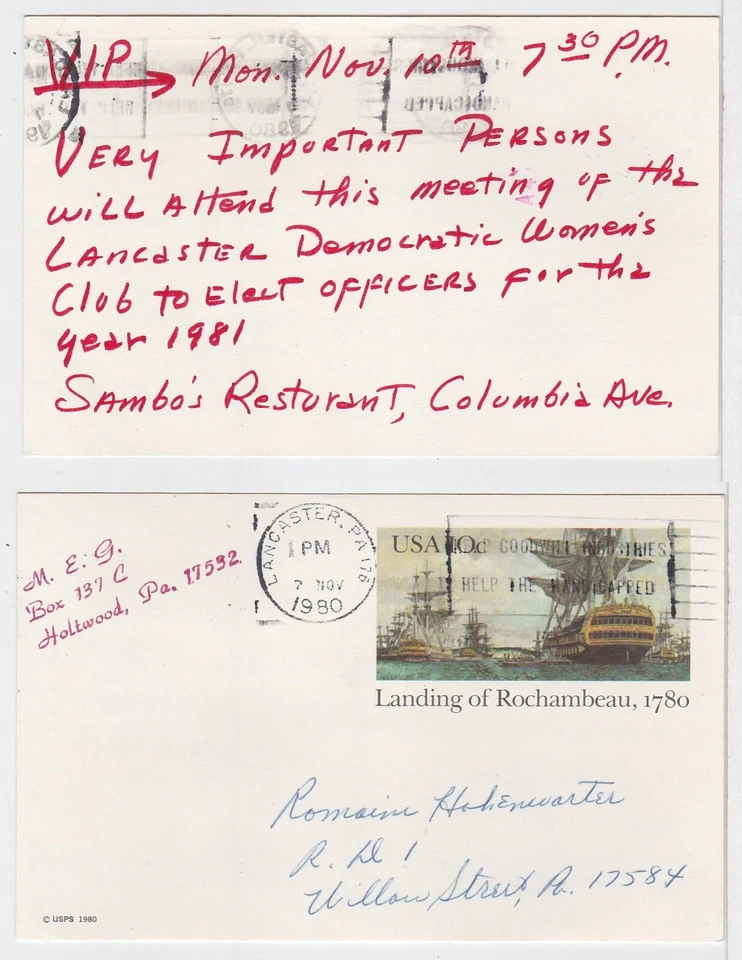 VIP → Mon. Nov. 10th 7 30 P.M.
Very Important Persons
will Attend this meeting of the
Lancaster Democratic Women's
Club to Elect officers for the
year 1981
Sambo's Resturant, Columbia Ave.
M. E. G.
Box 137 C
Holtwood, Pa. 17532
LANCASTER, PA 175
PM
7 NOV
1980
USA 10c
GOODWILL INDUSTRIES
HELP THE HANDICAPPED
Landing of Rochambeau, 1780
Romaine Hohenwarter
R. D 1
Willow Street, Pa. 17584
© USPS 1980